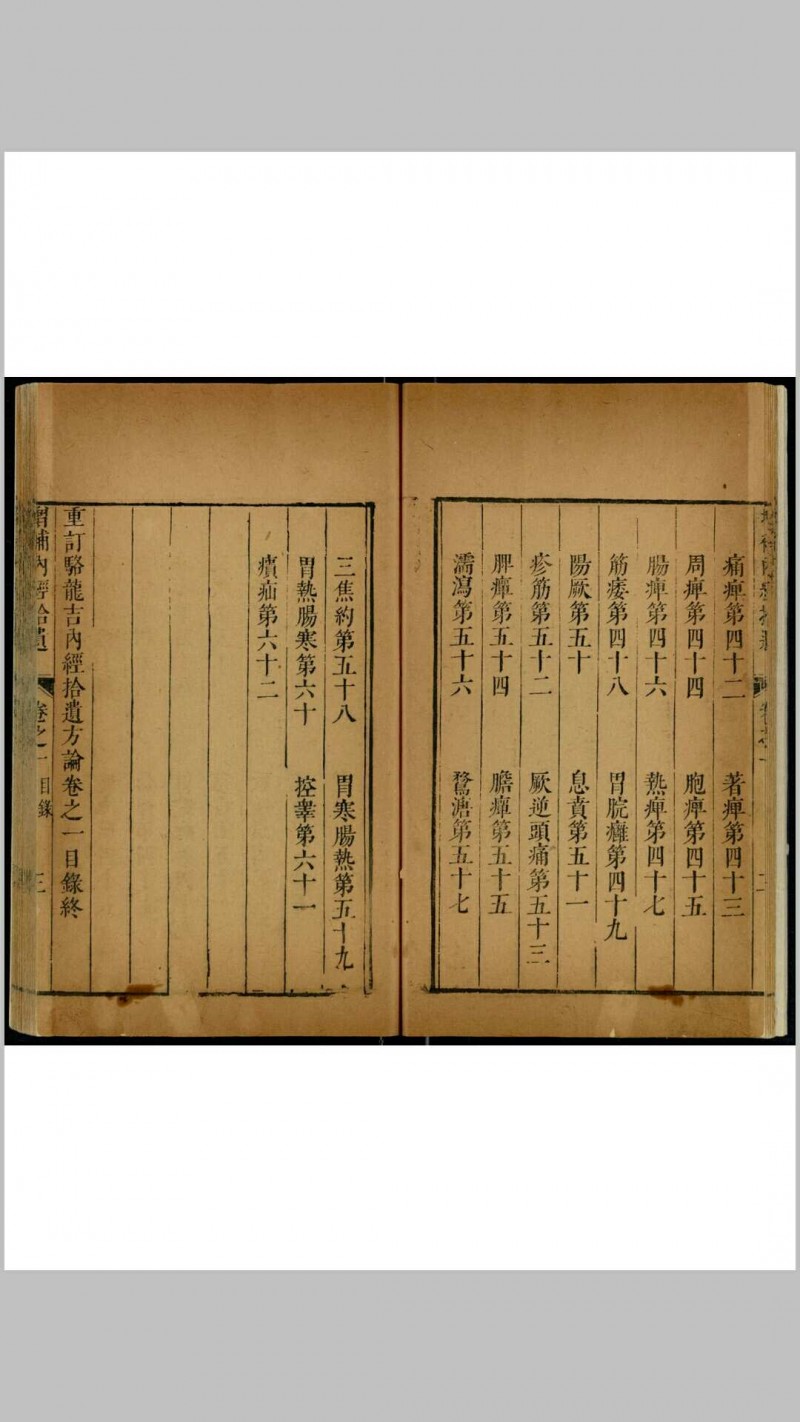 痛痺第四十二　著痺第四十三
周痺第四十四　胞痺第四十五
腸痺第四十六　熱痺第四十七
筋痿第四十八　胃脘癰第四十九
陽厥第五十　息賁第五十一
疹筋第五十二　厥逆頭痛第五十三
脾癉第五十四　膽癉第五十五
濡瀉第五十六　鶩溏第五十七
三焦約第五十八　胃寒腸熱第五十九
胃熱腸寒第六十　控睾第六十一
㿉疝第六十二
重訂駱龍吉內經拾遺方論卷之一目錄終
增補內經拾遺　卷之一目錄　三